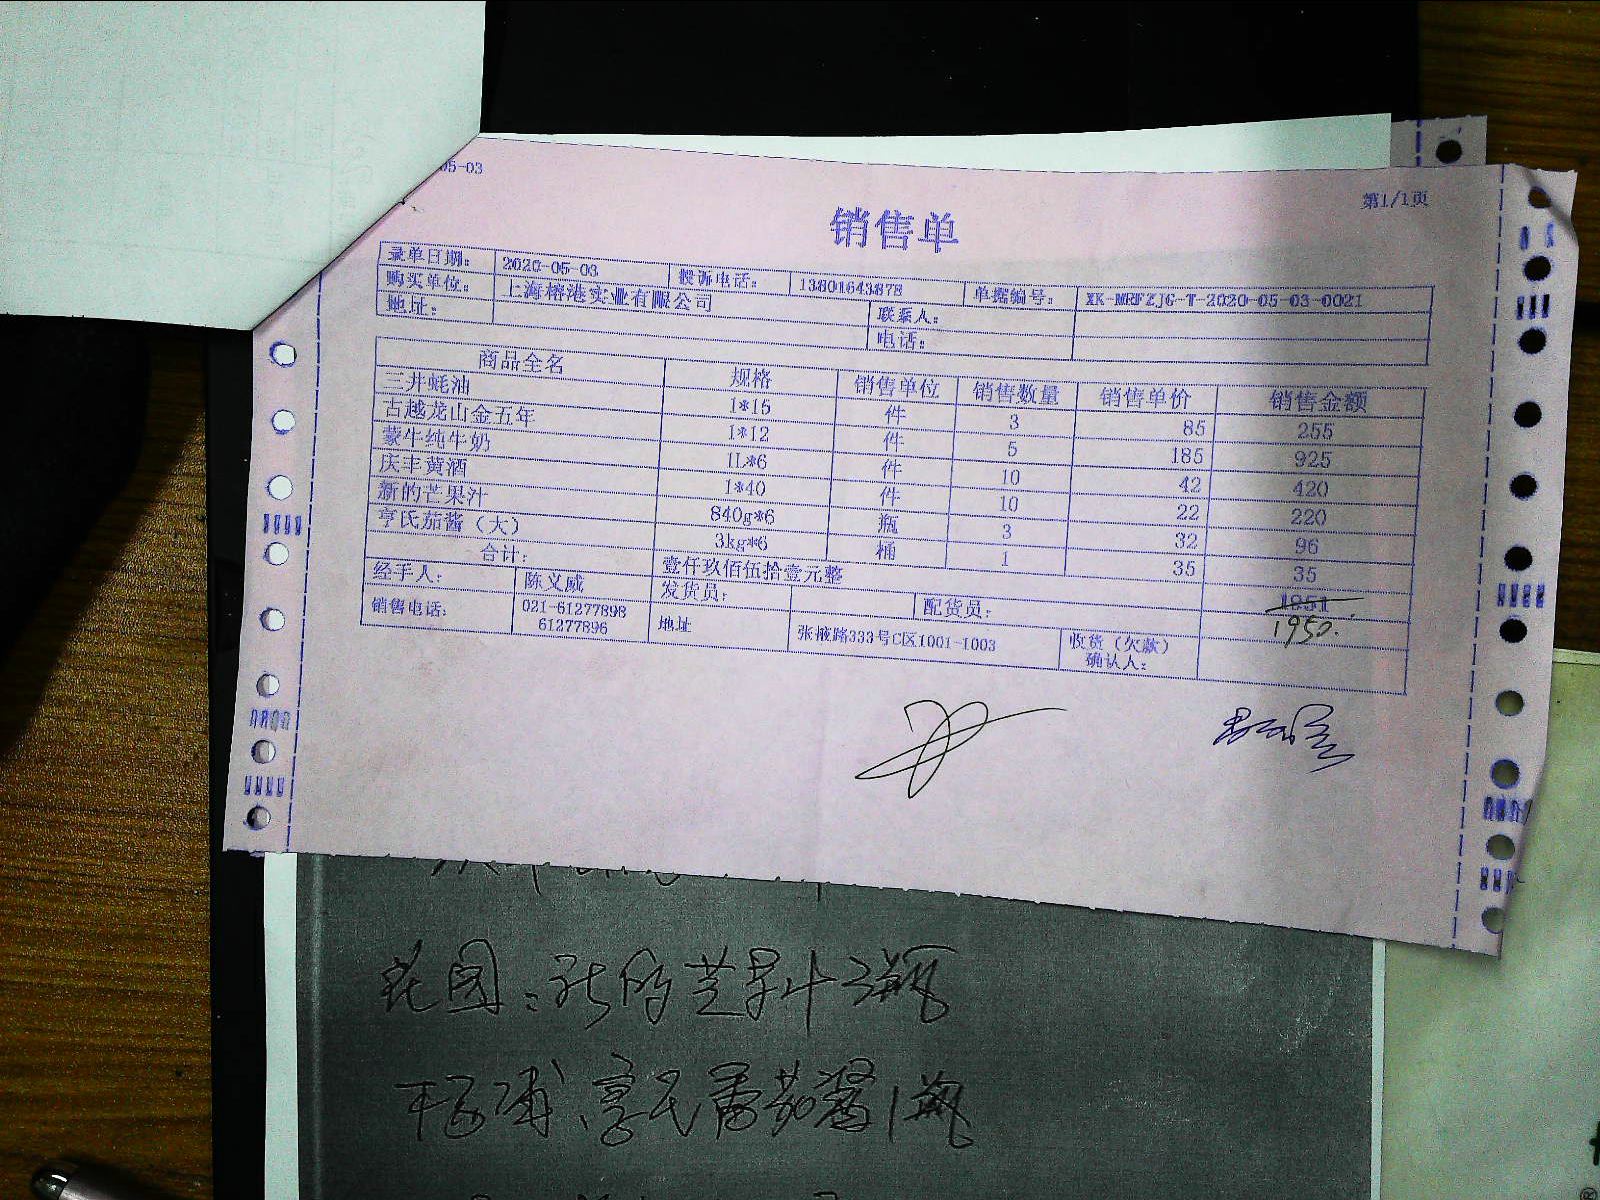 05-03
第1/1页
销售单
录单日期： 2020-05-03 投诉电话： 13801643878 单据编号： XK-MRFZJG-T-2020-05-03-0021
购买单位： 上海榕港实业有限公司 联系人：
地址： 电话：
商品全名 规格 销售单位 销售数量 销售单价 销售金额
三井蚝油 1*15 件 3 85 255
古越龙山金五年 1*12 件 5 185 925
蒙牛纯牛奶 1L*6 件 10 42 420
庆丰黄酒 1*40 件 10 22 220
新的芒果汁 840g*6 瓶 3 32 96
亨氏茄酱（大） 3kg*6 桶 1 35 35
合计： 壹仟玖佰伍拾壹元整 1951
1950.
经手人： 陈义威 发货员： 配货员：
销售电话： 021-61277898 61277896 地址 张掖路333号C区1001-1003 收货（欠款）确认人：
花园：新的芒果汁3瓶
亨氏番茄酱1瓶